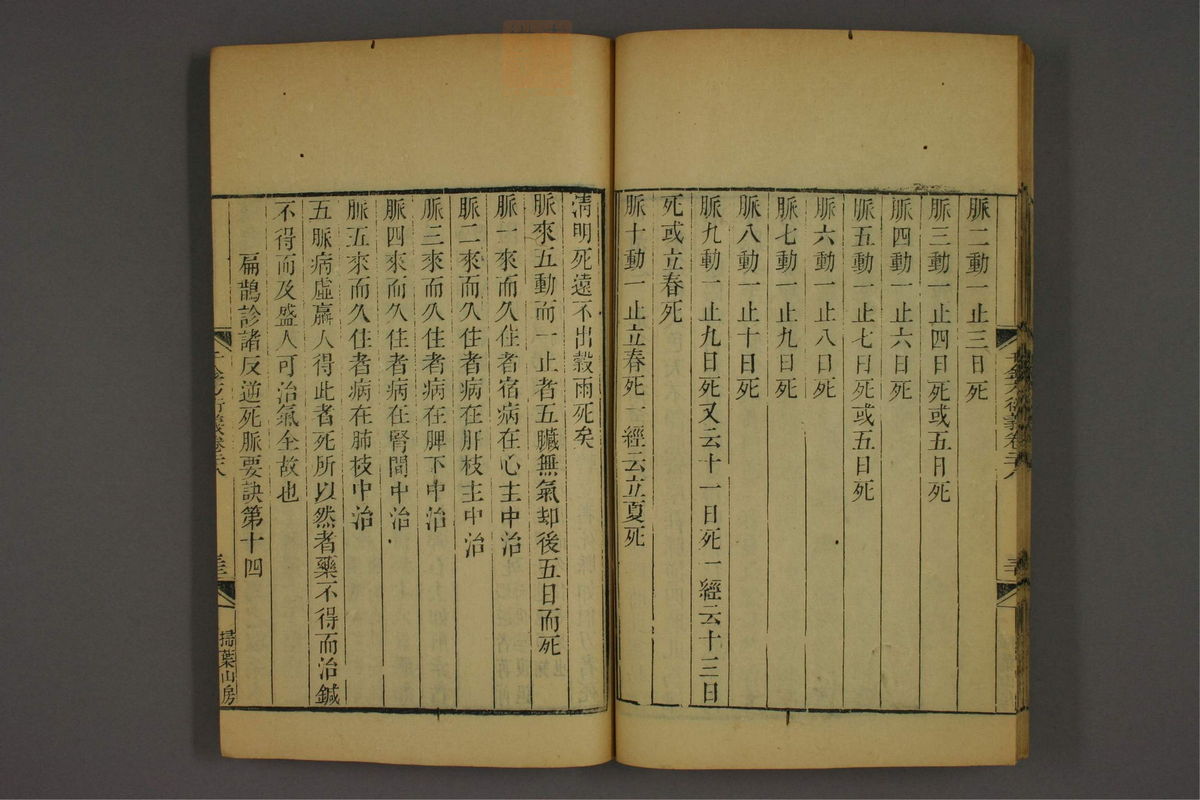 脈二動一止三日死
脈三動一止四日死或五日死
脈四動一止六日死
脈五動一止七日死或五日死
脈六動一止八日死
脈七動一止九日死
脈八動一止十日死
脈九動一止九日死又云十一日死一經云十三日
死或立春死
脈十動一止立春死一經云立夏死
清明死遠不出穀雨死矣
脈來五動而一止者五臟無氣却後五日而死
脈一來而久住者宿病在心主中治
脈二來而久住者病在肝枝主中治
脈三來而久住者病在脾下中治
脈四來而久住者病在腎間中治
脈五來而久住者病在肺枝中治
五脈病虛羸人得此者死所以然者藥不得而治鍼
不得而及盛人可治氣全故也
扁鵲診諸反逆死脈要訣第十四
千金方衍義卷二十八
掃葉山房